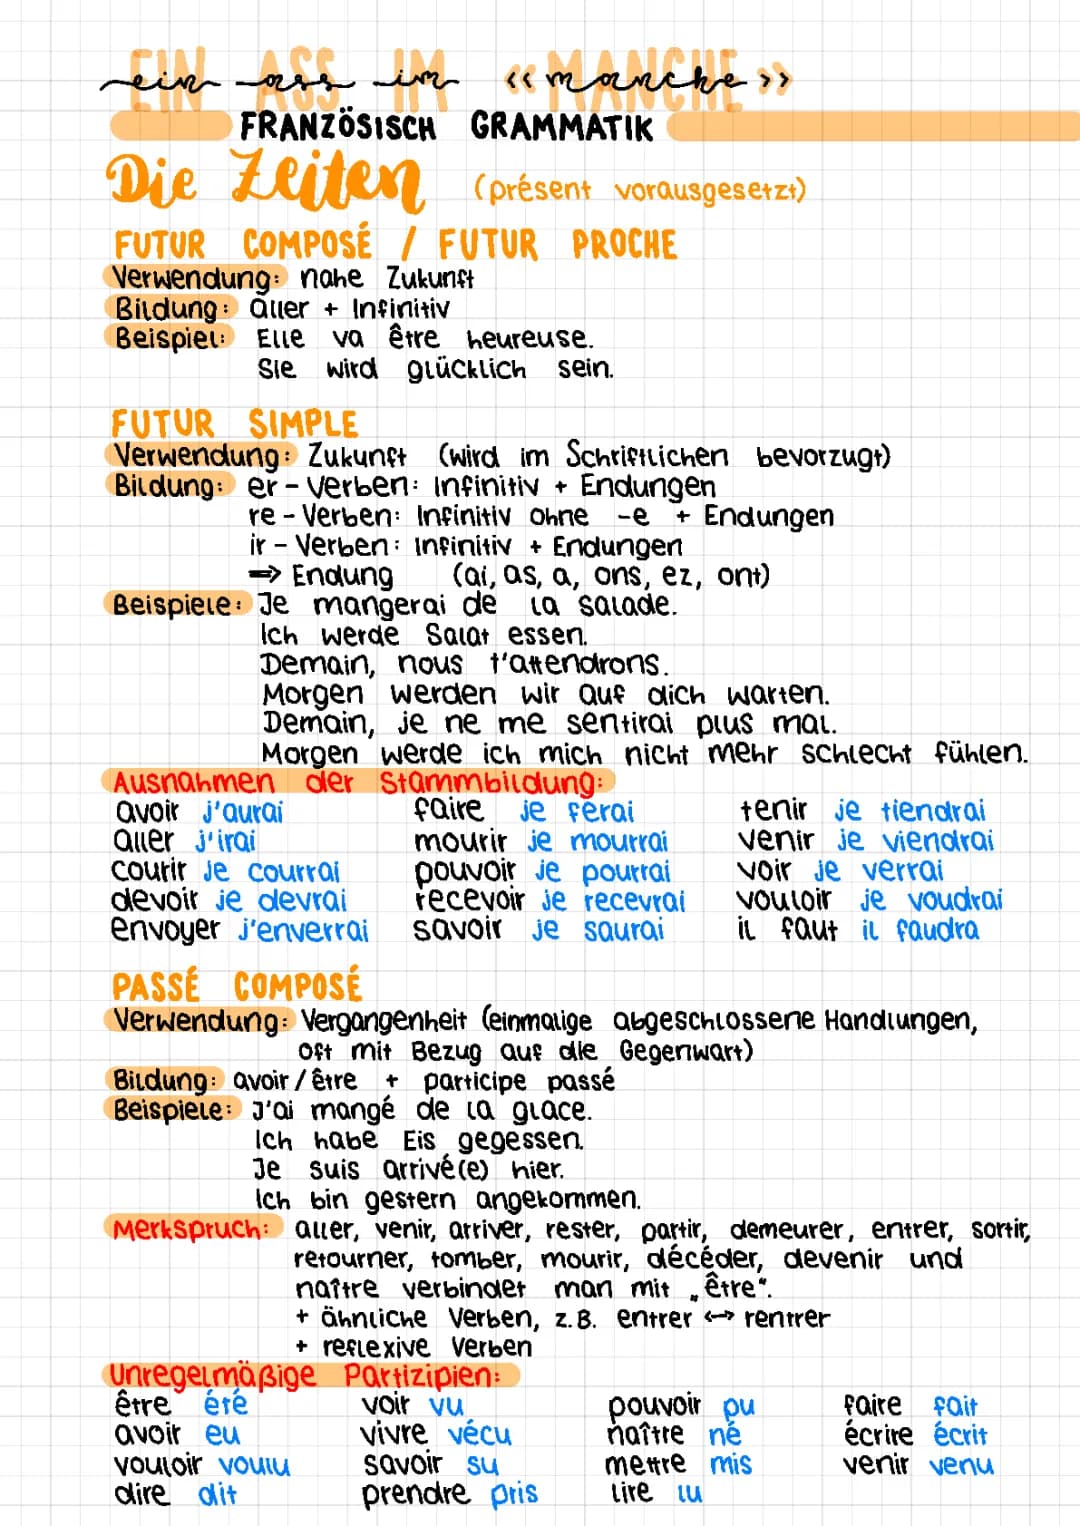 ein ass im «manche»
EIN ASS IM MANCHE
FRANZÖSISCH GRAMMATIK
Die Zeiten (présent vorausgesetzt)
FUTUR COMPOSÉ / FUTUR PROCHE
Verwendung: nahe Zukunft
Bildung: aller + Infinitiv
Beispiel: Elle va être heureuse.
Sie wird glücklich sein.
FUTUR SIMPLE
Verwendung: Zukunft (wird im Schriftlichen bevorzugt)
Bildung: er - Verben: Infinitiv + Endungen
re - Verben: Infinitiv ohne -e + Endungen
ir - Verben: Infinitiv + Endungen
=> Endung (ai, as, a, ons, ez, ont)
Beispiele: Je mangerai de la salade.
Ich werde Salat essen.
Demain, nous t'attendrons.
Morgen werden wir auf dich warten.
Demain, je ne me sentirai plus mal.
Morgen werde ich mich nicht mehr schlecht fühlen.
Ausnahmen der Stammbildung:
avoir j'aurai faire je ferai tenir je tiendrai
aller j'irai mourir je mourrai venir je viendrai
courir je courrai pouvoir je pourrai voir je verrai
devoir je devrai recevoir je recevrai vouloir je voudrai
envoyer j'enverrai savoir je saurai il faut il faudra
PASSÉ COMPOSÉ
Verwendung: Vergangenheit (einmalige abgeschlossene Handlungen,
oft mit Bezug auf die Gegenwart)
Bildung: avoir/être + participe passé
Beispiele: J'ai mangé de la glace.
Ich habe Eis gegessen.
Je suis arrivé(e) hier.
Ich bin gestern angekommen.
Merkspruch: aller, venir, arriver, rester, partir, demeurer, entrer, sortir,
retourner, tomber, mourir, décéder, devenir und
naître verbindet man mit „être".
+ ähnliche Verben, z.B. entrer <-> rentrer
+ reflexive Verben
Unregelmäßige Partizipien:
être été voir vu pouvoir pu faire fait
avoir eu vivre vécu naître né écrire écrit
vouloir voulu savoir su mettre mis venir venu
dire dit prendre pris lire lu